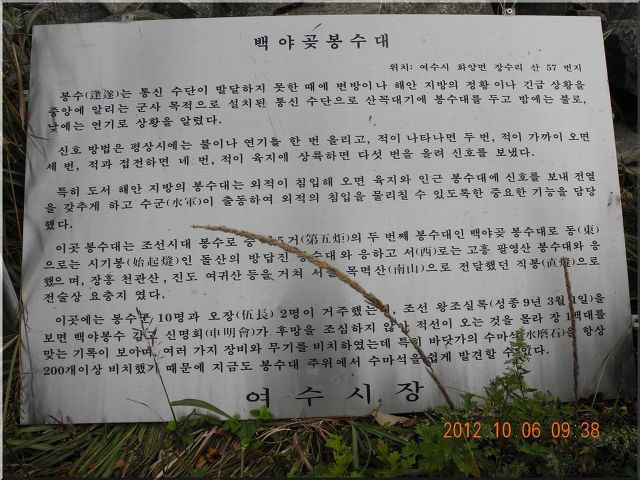 백야곶봉수대
위치: 여수시 화양면 장수리 산 57 번지
봉수(逢遂)는 통신 수단이 발달하지 못한 때에 변방이나 해안 지방의 정황 이나 긴급 상황을
중앙에 알리는 군사 목적으로 설치된 통신 수단으로 산꼭대기에 봉수대를 두고 밤에는 불로,
낮에는 연기로 상황을 알렸다.
신호 방법은 평상시에는 불이나 연기를 한 번 올리고, 적이 나타나면 두 번, 적이 가까이 오면
세 번, 적과 접전하면 네 번, 적이 육지에 상륙하면 다섯 번을 올려 신호를 보냈다.
특히 도서 해안 지방의 봉수대는 외적이 침입해 오면 육지와 인근 봉수대에 신호를 보내 전열
을 갖추게 하고 수군(水軍)이 출동하여 외적의 침입을 물리칠 수 있도록한 중요한 기능을 담당
했다.
이곳 봉수대는 조선시대 봉수로 중 5거(第五炬)의 두 번째 봉수대인 백야곶 봉수대로 동(東)
으로는 시기봉(始起烽)인 돌산의 방답진 봉수대와 응하고 서(西)로는 고흥 팔영산 봉수대와 응
했으며, 장흥 천관산, 진도 여귀산 등을 거쳐 서울 목멱산(南山)으로 전달했던 직봉(直烽)으로
전술상 요충지 였다.
이곳에는 봉수군 10명과 오장(伍長) 2명이 거주했는데, 조선 왕조실록(성종 9년 3월 1일)을
보면 백야봉수 감고 신명회(申明會)가 후망을 조심하지 않아 적선이 오는 것을 몰라 장 1백대를
맞는 기록이 보이며, 여러 가지 장비와 무기를 비치하였는데 특히 바닷가의 수마석(水磨石)을 항상
200개이상 비치했기 때문에 지금도 봉수대 주위에서 수마석을 쉽게 발견할 수 있다.
여수시장
2012 10 06 09 38